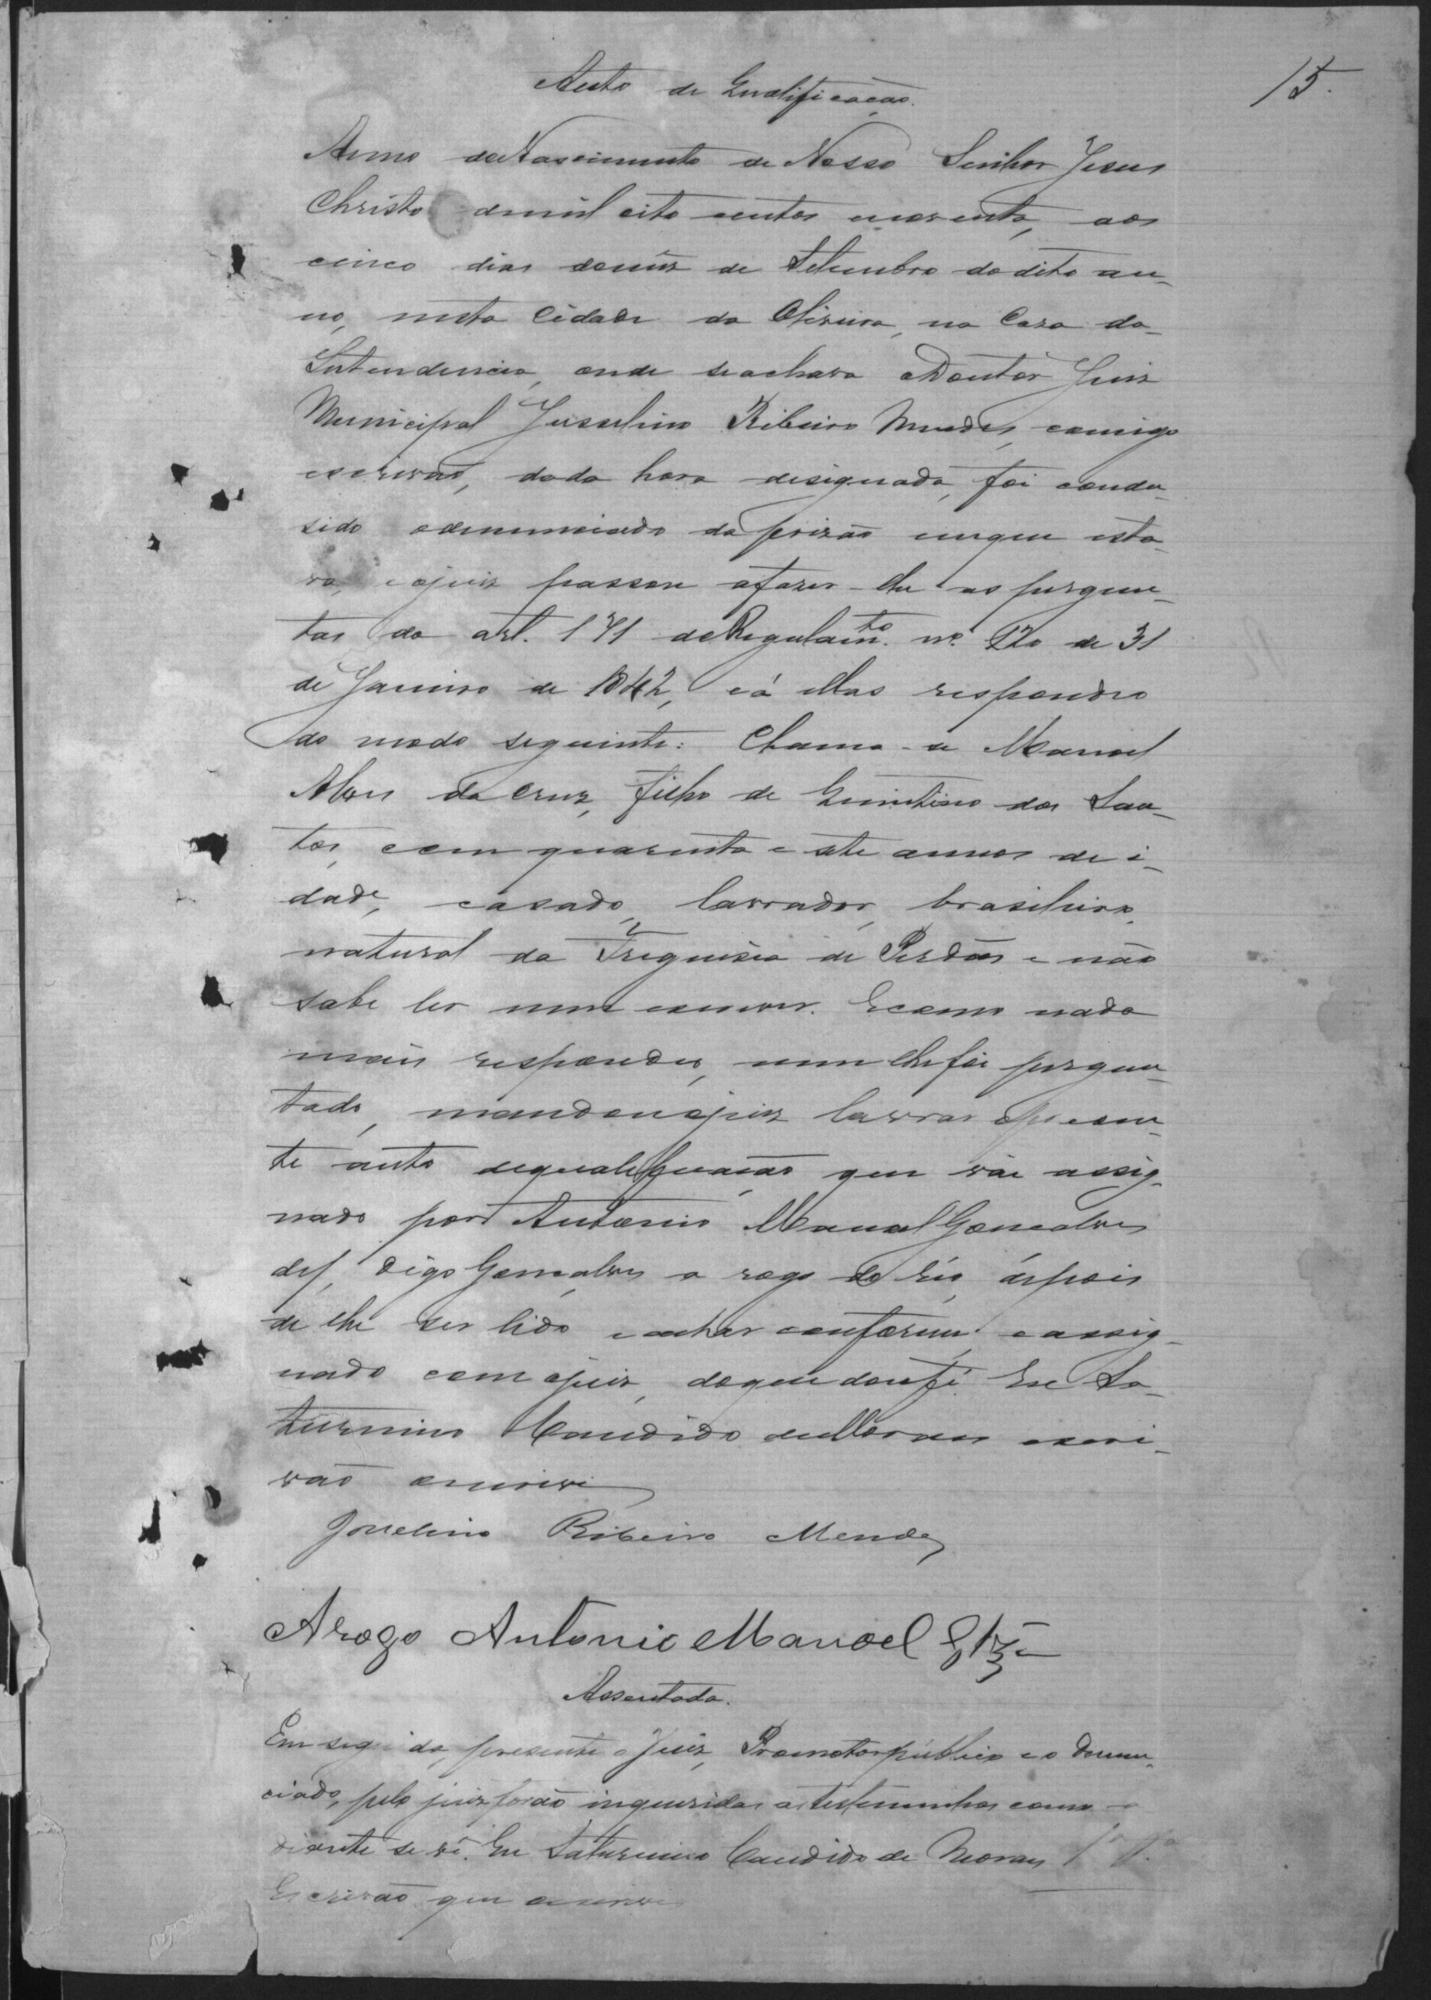 15.
Auto de Qualificação.
Anno do Nascimento de Nosso Senhor Jesus
Christo de mil oito centos noventa, aos
cinco dias do mez de Setembro do dito an-
no, nesta Cidade da Oliveira, na Casa da
Intendencia, onde se achava o Doutor Juiz
Municipal Jusselino Ribeiro Mendes, comigo
escrivão, dada hora designada, foi condu-
sido o denunciado da prizão em que esta-
va, e o juiz passou a fazer-lhe as pergun-
tas do art. 171 do Regulamto. nº. 120 de 31
de Janeiro de 1842, e á ellas respondeo
do modo seguinte: Chama-se Manoel
Alves da Cruz, filho de Quintino dos San-
tos, com quarenta e sete annos de i-
dade, casado, lavrador, brasileiro,
natural da Freguesia de Perdões e não
sabe ler nem escrever. E como nada
mais respondeo, nem lhe foi pergun-
tado, mandou o juiz lavrar o presen-
te auto de qualificação que vae assig-
nado por Antonio Manoel Gonçalves
digo Gonçalves a rogo do réo, depois
de lhe ser lido e achar conforme e assig-
nado com o juiz, do que dou fé. Eu Sa-
turnino Candido de Moraes escri-
vão escrevi
Josselino Ribeiro Mendes
A rogo Antonio Manoel
Assentada.
Em seguida, presente o Juiz, Promotor publico e o denun-
ciado, pelo juiz forão inqueridas as testemunhas como
diante se vê. Eu Saturnino Candido de Moraes
Escrivão que escrevi